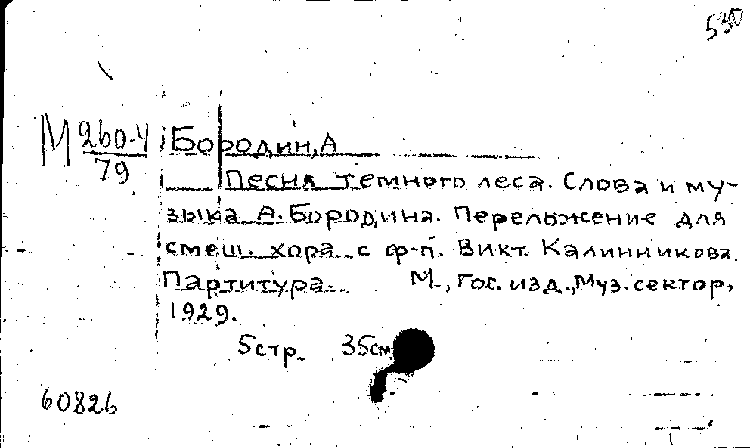 530
М 260-4
79
Бородин, А
Песня темного леса. Слова и му-
зыка А. Бородина. Переложение для
смеш. хора с ф-п. Викт. Калинникова.
Партитура. М., Гос. изд., Муз. сектор,
1929.
5 стр. 35 см
60826